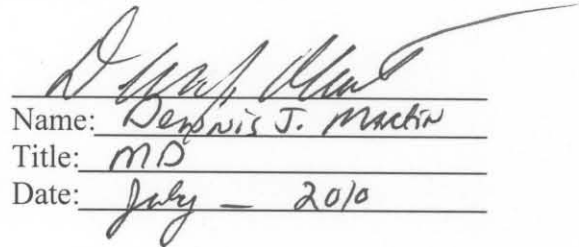 Name: Dennis J. Martin
Title: MD
Date: July — 2010